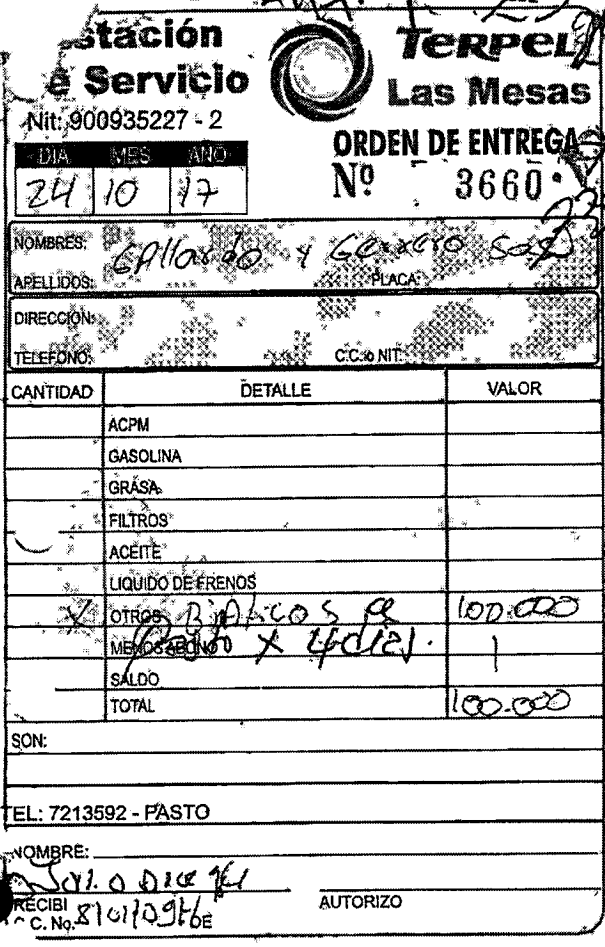 stación
e Servicio
TERPEL
Las Mesas
Nit: 900935227 - 2
ORDEN DE ENTREGA
DIA MES AÑO
24 10 17
Nº 3660
NOMBRES:
GAllardo y
APELLIDOS:
PLACA:
DIRECCIÓN:
TELEFONO:
C.C. o NIT:
CANTIDAD DETALLE VALOR
ACPM
GASOLINA
GRASA
FILTROS
ACEITE
LIQUIDO DE FRENOS
X OTROS 100.000
MENOS ABONO X 4
SALDO
TOTAL 100.000
SON:
TEL: 7213592 - PASTO
NOMBRE:
RECIBI
C. No. DE
AUTORIZO